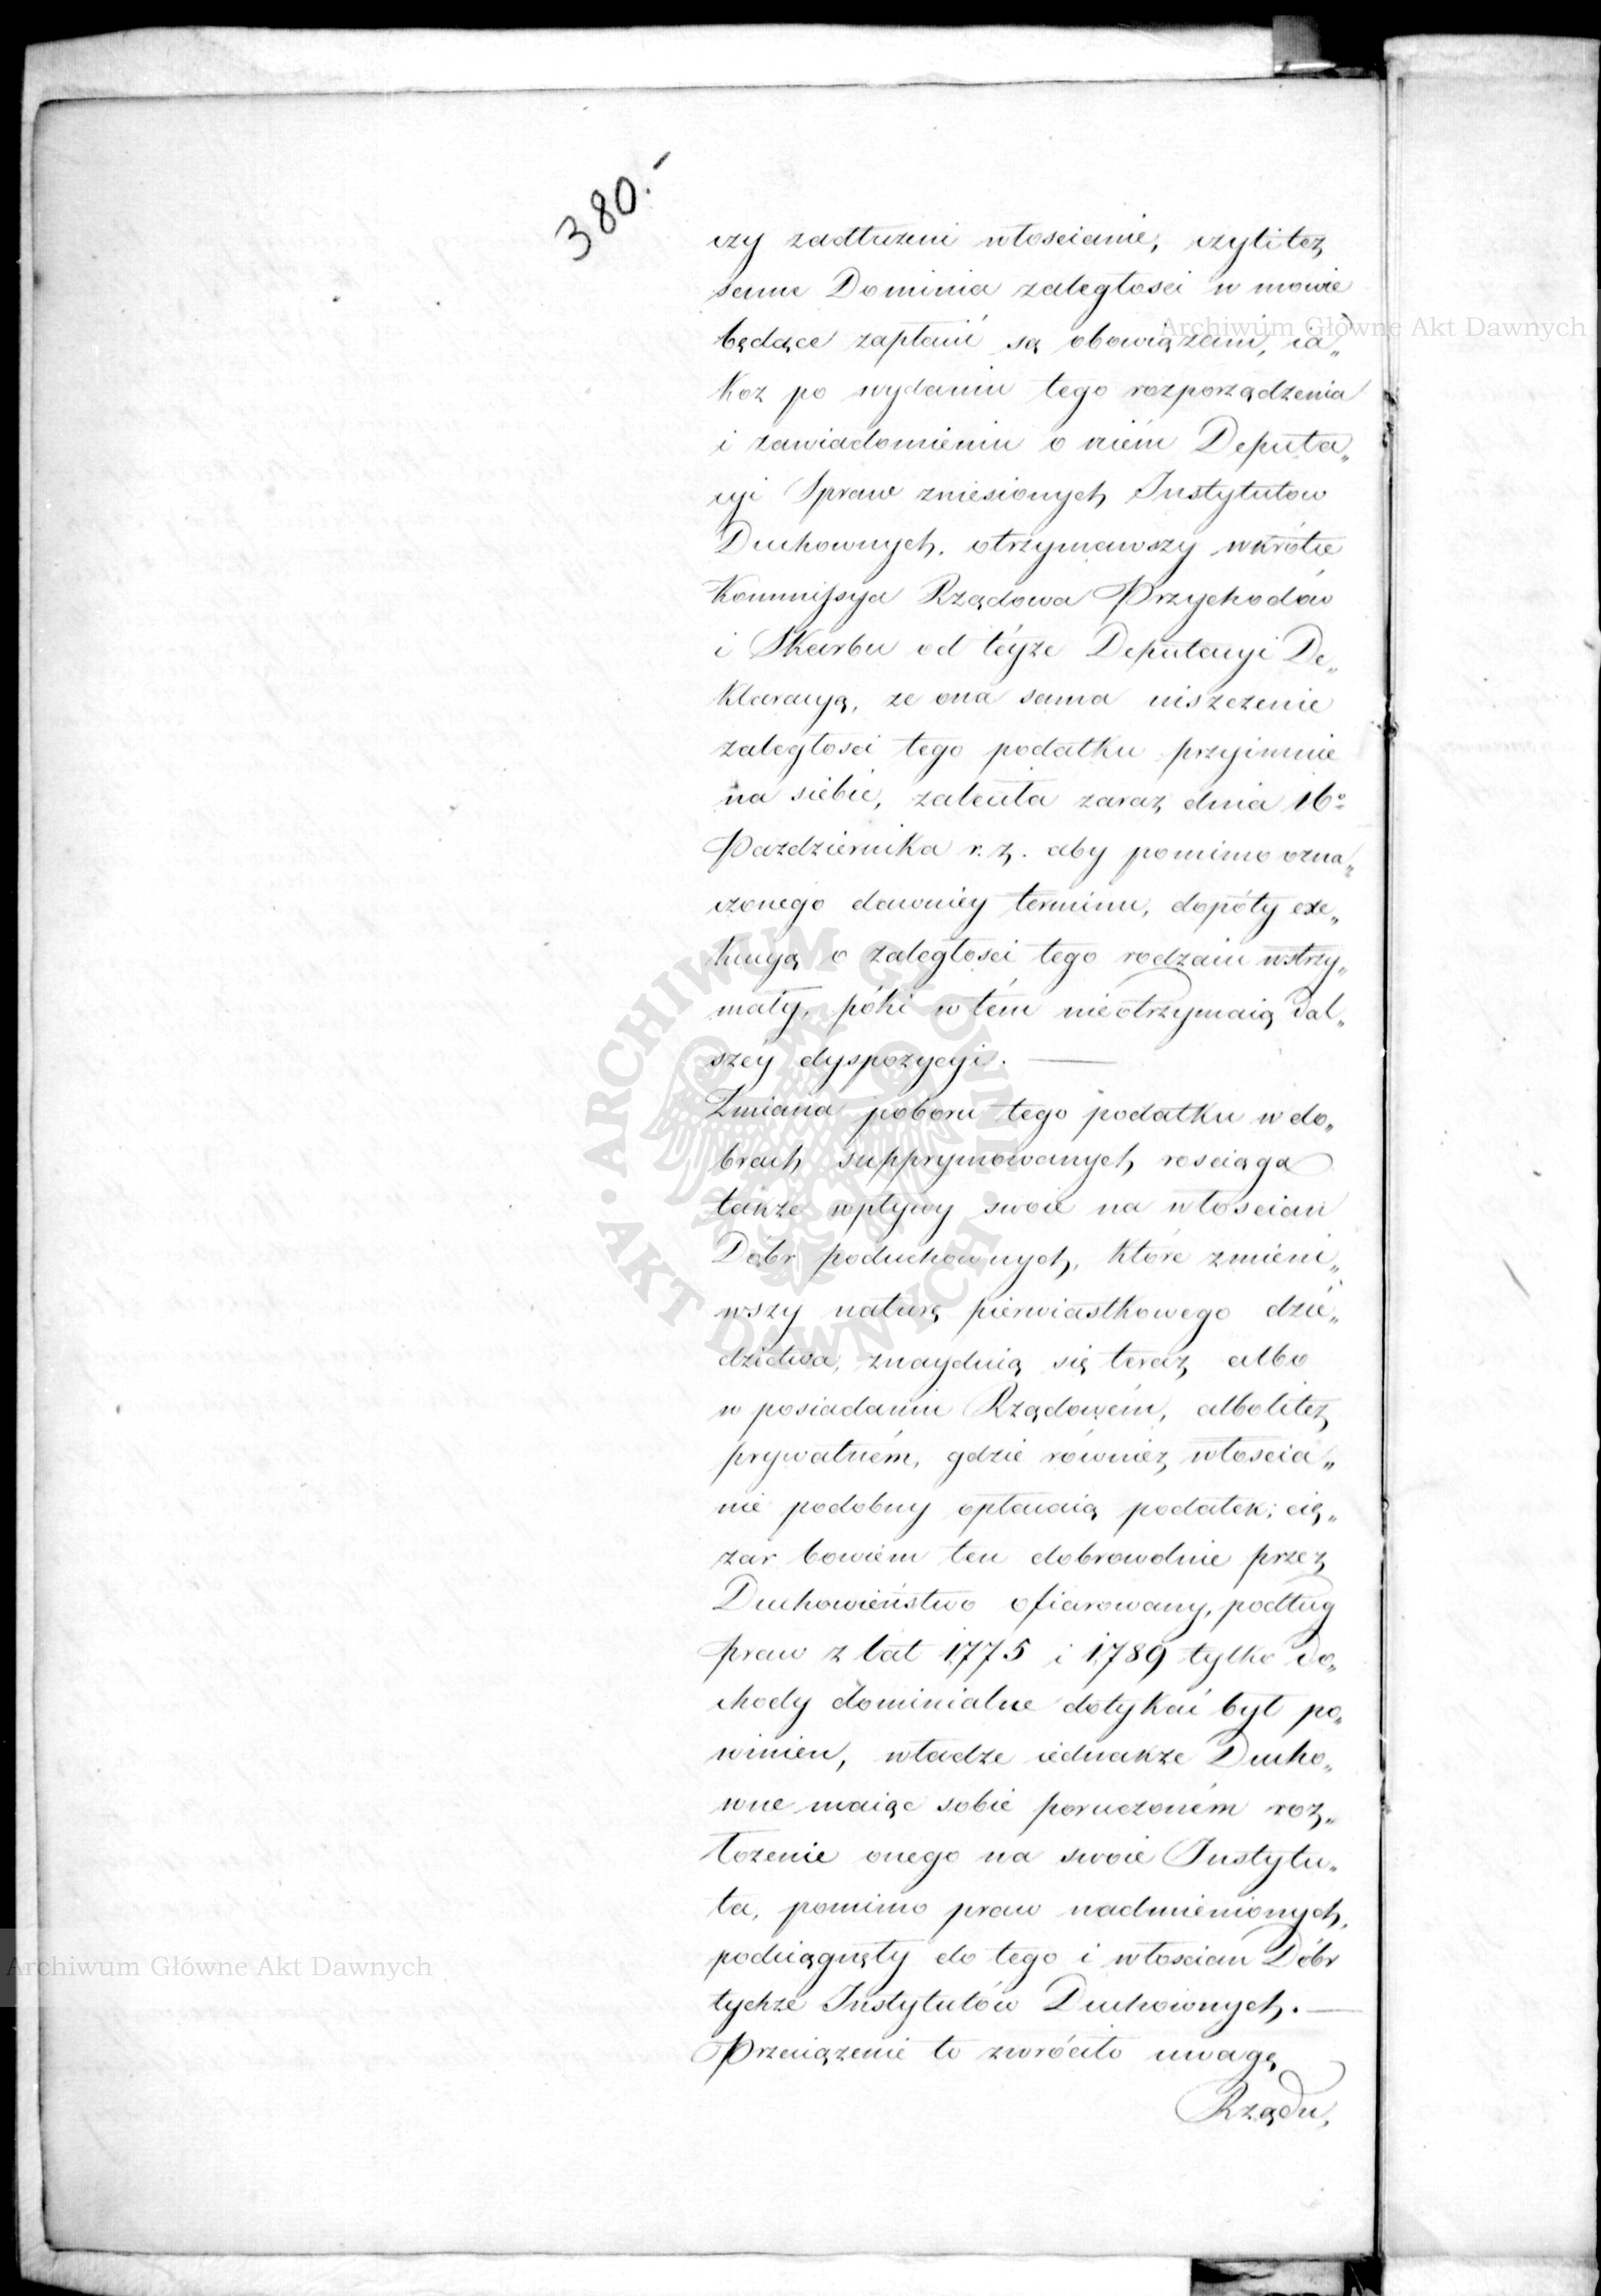 380.-
czy zadłużeni włościanie, czyli też
same Dominia zaległości w mowie
będące zapłacić są obowiązani, ia„
koż po wydaniu tego rozporządzenia
i zawiadomieniu o niém Deputa„
cyi Spraw zniesionych Instytutow
Duchownych, otrzymawszy wkrótce
Kommissya Rządowa Przychodów
i Skarbu od téyże Deputacyi De„
klaracyą, że ona sama uiszczenie
zaległości tego podatku przyimuie
na siebie, zaleciła zaraz dnia 16º
Października r. z. aby pomimo ozna„
czonego dawniéy terminu, dopóty exe„
kucyą o zaległości tego rodzaiu wstrzy„
mały, póki w tém nie otrzymaią dal„
széy dyspozycyi. —
Zmiana poboru tego podatku w do„
brach supprymowanych rościąga
także wpływy swoie na włościan
Dóbr poduchownych, które zmieni„
wszy naturę pierwiastkowego dzie„
dzictwa, znayduią się teraz albo
w posiadaniu Rządowém, albo też
prywatném, gdzie również włościa„
nie podobny opłacaią podatek; cię„
żar bowiem ten dobrowolnie przez
Duchowieństwo ofiarowany, podług
praw z lat 1775 i 1789 tylko do„
chody dominialne dotykać był po„
winien, władze iednakże Ducho„
wne maiąc sobie poruczoném roz„
łożenie onego na swoie Instytu„
ta, pomimo praw nadmienionych,
podciągnęły do tego i włościan Dóbr
tychże Instytutów Duchownych. —
Przeciążenie to zwróciło uwagę
Rządu,
Archiwum Główne Akt Dawnych
ARCHIWUM GŁÓWNE · AKT DAWNYCH ·
Archiwum Główne Akt Dawnych